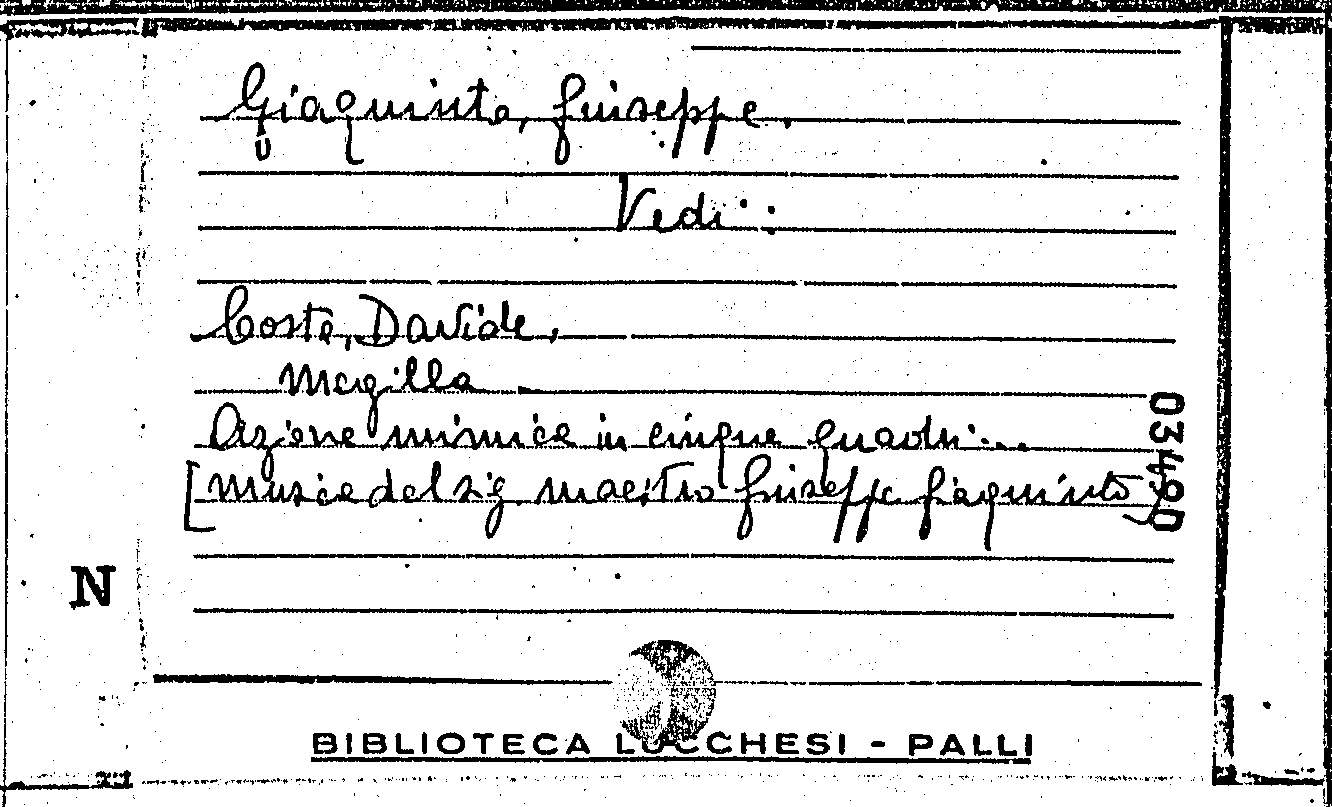 Giaquinto, Giuseppe.
Vedi:
Costa, Davide.
Magilla
Azione mimica in cinque quadri...
[Musica del sig. maestro Giuseppe Giaquinto]
03490
N
BIBLIOTECA LUCCHESI - PALLI